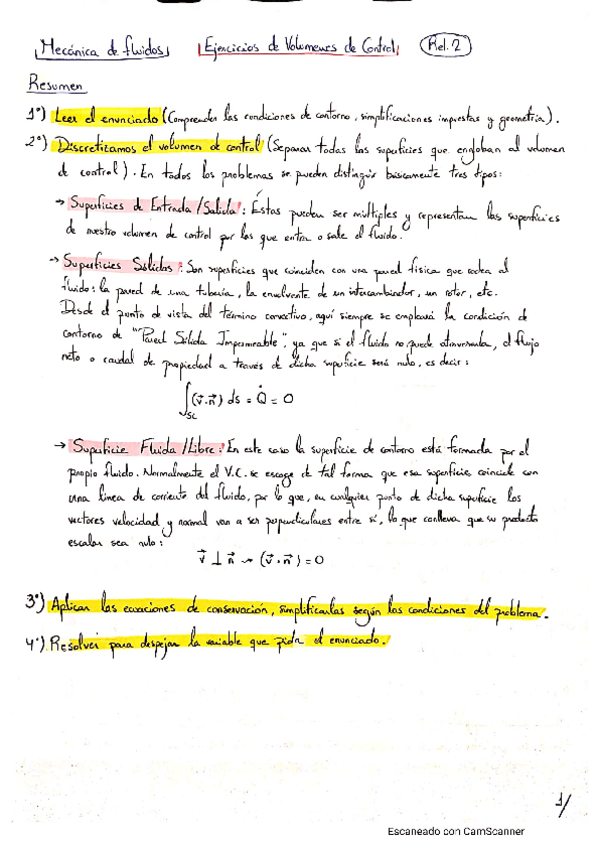 Mecánica de fluidos Ejercicios de Volumenes de Control Rel. 2
Resumen
1º) Leer el enunciado (Comprender las condiciones de contorno, simplificaciones impuestas y geometría).
2º) Discretizamos el volumen de control (Separar todas las superficies que engloban al volumen
de control). En todos los problemas se pueden distinguir básicamente tres tipos:
→ Superficies de Entrada/Salida: Éstas pueden ser múltiples y representan las superficies
de nuestro volumen de control por las que entra o sale el fluido.
→ Superficies Sólidas: Son superficies que coinciden con una pared física que rodea al
fluido: la pared de una tubería, la envolvente de un intercambiador, un rotor, etc.
Desde el punto de vista del término convectivo, aquí siempre se empleará la condición de
contorno de "Pared Sólida Impermeable", ya que si el fluido no puede atravesarla, el flujo
neto o caudal de propiedad a través de dicha superficie será nulo, es decir:
∫SC (v⃗·n⃗) ds = Q̇ = 0
→ Superficie Fluida/Libre: En este caso la superficie de contorno está formada por el
propio fluido. Normalmente el V.C. se escoge de tal forma que esa superficie coincide con
una línea de corriente del fluido, por lo que, en cualquier punto de dicha superficie los
vectores velocidad y normal van a ser perpendiculares entre sí, lo que conlleva que su producto
escalar sea nulo:
v⃗ ⊥ n⃗ → (v⃗·n⃗) = 0
3º) Aplicar las ecuaciones de conservación, simplificarlas según las condiciones del problema.
4º) Resolver para despejar la variable que pida el enunciado.
1/
Escaneado con CamScanner